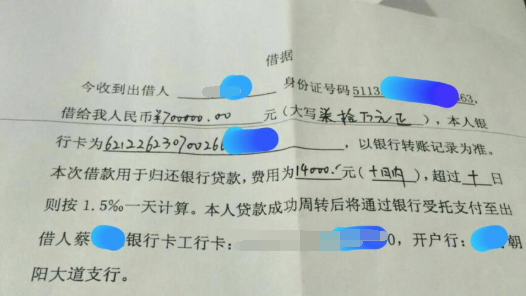 借据
今收到出借人 身份证号码5113 63,
借给我人民币¥700000.00元(大写柒拾万元正),本人银
行卡为62122623070026 ,以银行转账记录为准。
本次借款用于归还银行贷款,费用为14000.-元(十日内),超过十日
则按1.5‰一天计算。本人贷款成功周转后将通过银行受托支付至出
借人蔡 银行卡工行卡: 0,开户行: 朝
阳大道支行。